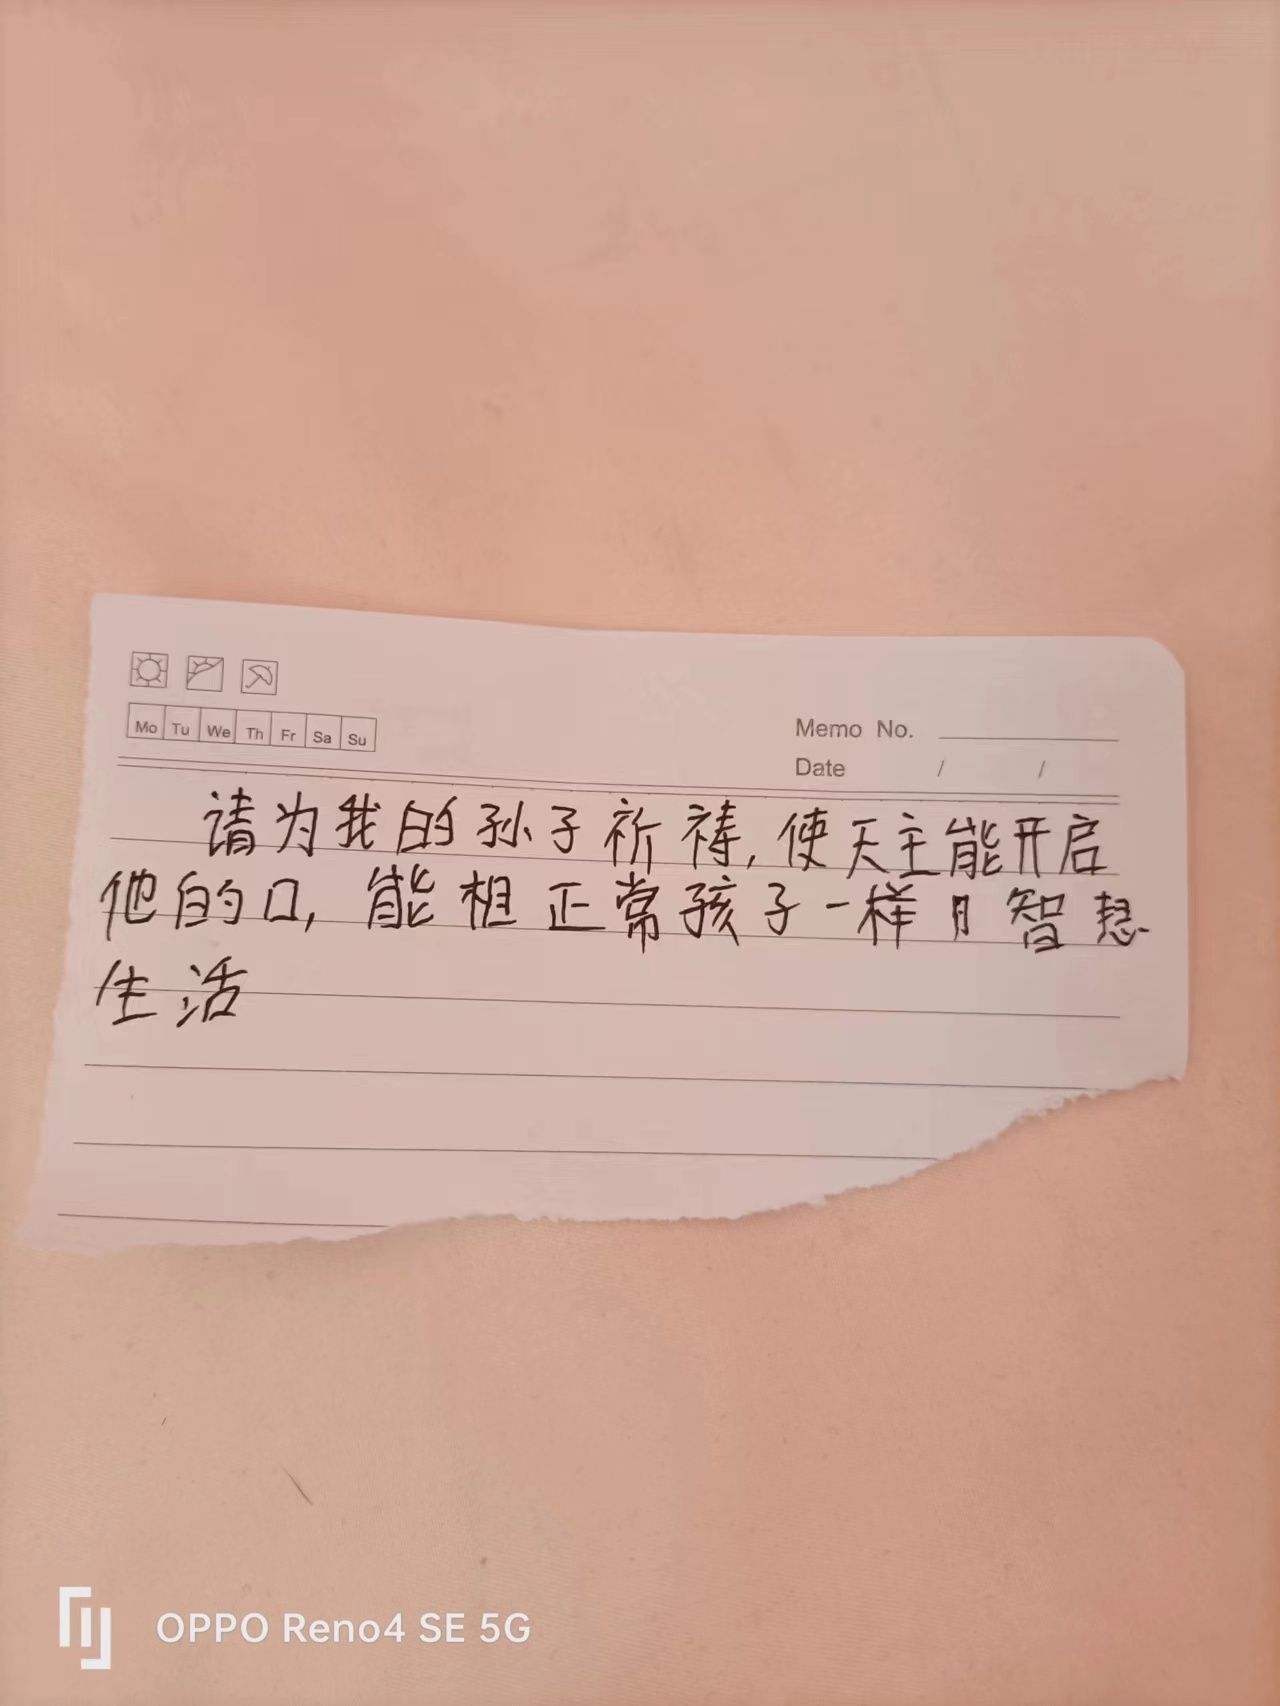 Mo Tu We Th Fr Sa Su
Memo No.
Date / /
请为我的孙子祈祷,使天主能开启
他的口,能相正常孩子一样月智慧
生活
OPPO Reno4 SE 5G